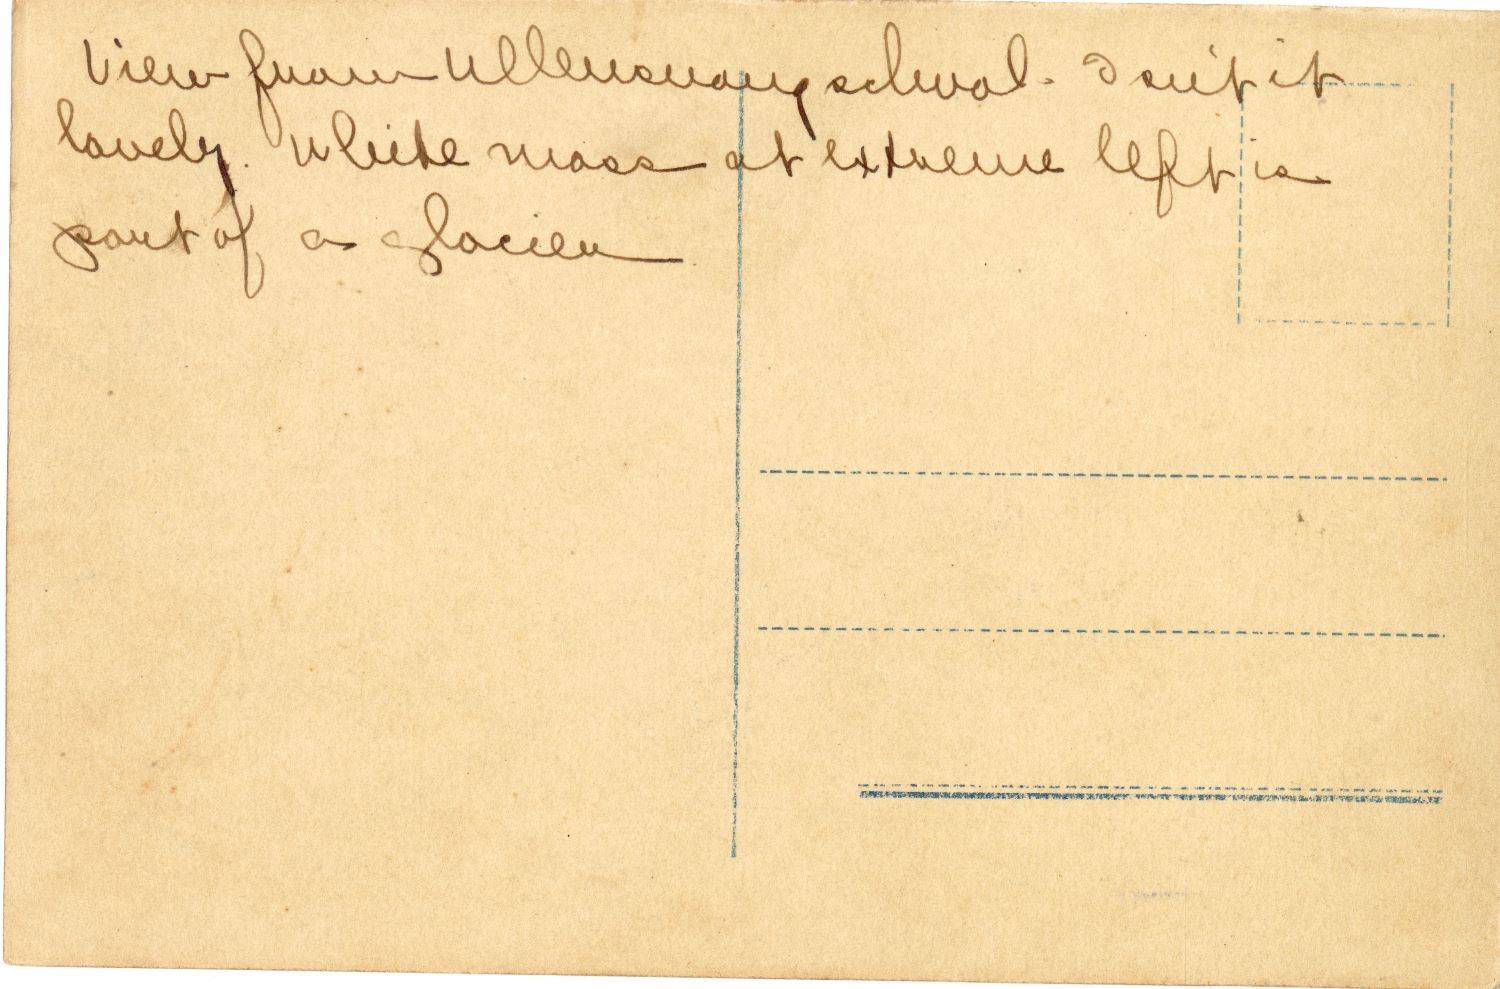 View from Ullensvang school. Isn't it
lovely. White mass at extreme left is
part of a glacier